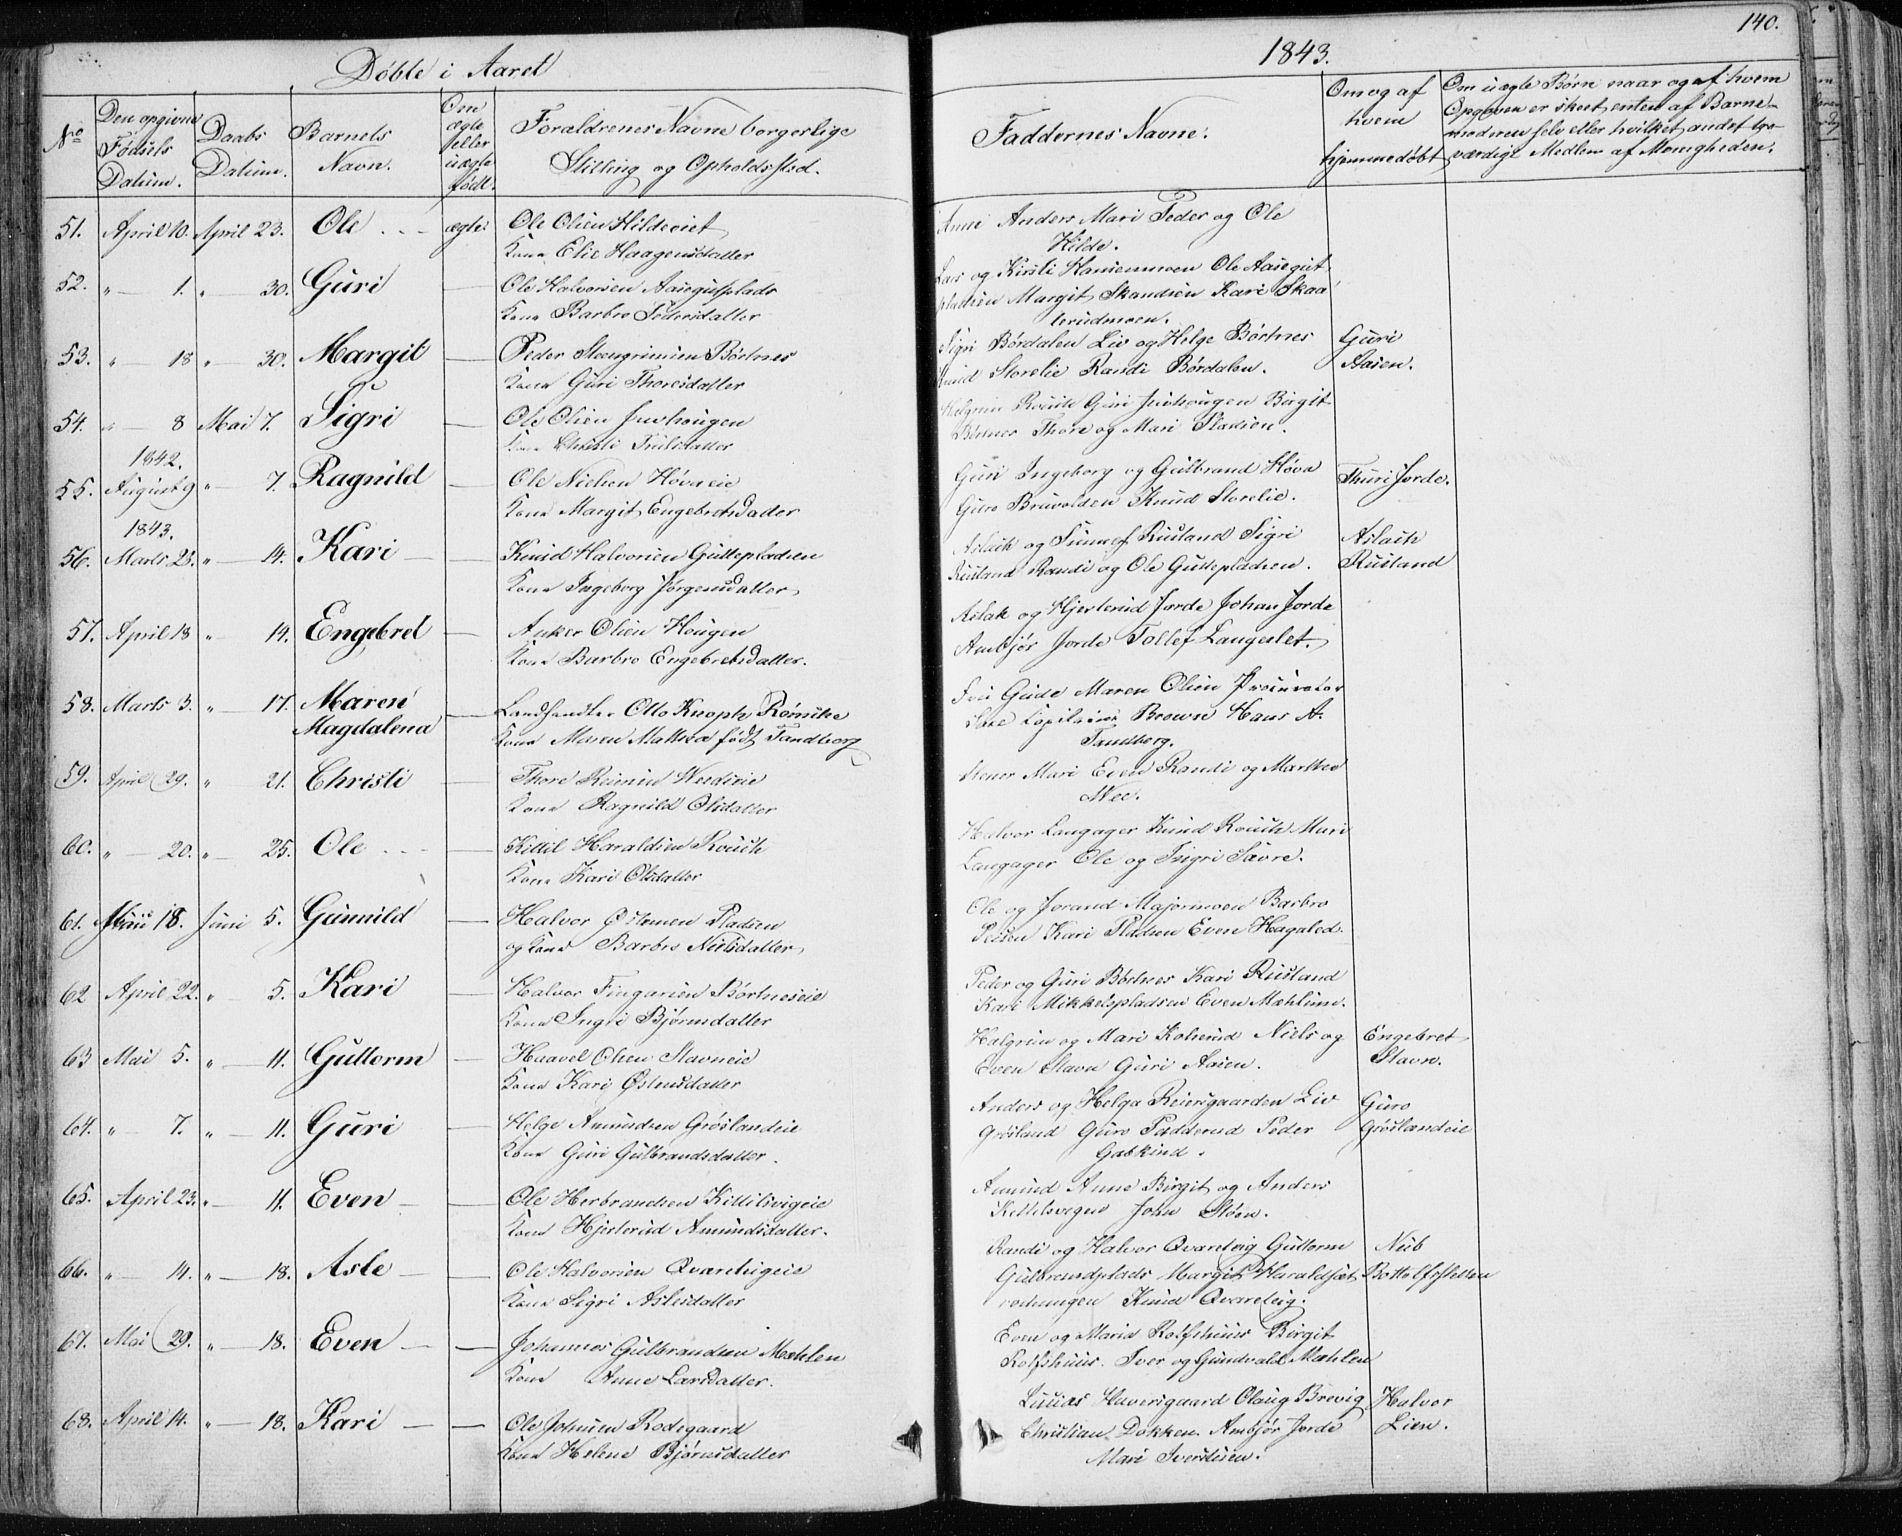 140.
Døbte i Aaret
1843.
No
Den opgivne
Fødsels
Datum.
Daabs
Datum.
Barnets
Navn.
Om
ægte
eller
uægte
født.
Forældrenes Navne borgerlige
Stilling og Opholdssted.
Faddernes Navne.
Om og af
hvem
hjemmedøbt
Om uægte Børn naar og af hvem
Opgaven er skeet enten af Barne-
moderen selv eller hvilket andet tro-
værdigt Medlem af Menigheden.
51. April 10. April 23. Ole ægte
Ole Olsen Hildeeiet
Kone Elie Haagensdatter
Anne Anders Mari Peder og Ole
Hilde.
52. " 1. " 30. Guri
Ole Halvorsen
Kone Barbro Pedersdatter
Lars og Kirsti Hansemoen Ole
Margit Kari Skaa
terudmoen.
53. " 18 " 30. Margit
Peder Steengrimsen Børtnes
Kone Guri Thoresdatter
Sigri Børdalen Liv og Helge Børtnes
Knud Storelie Randi Børdalen.
Guri
Aasen.
54. " 8 Mai 7. Sigri
Ole Olsen Juvhougen
Kone Christi
Halgrim Rouste Guri Juvhougen Birgit
Børtnes Thore og Mari Pladsen.
1842.
55. August 9 " 7. Ragnild
Ole Nielsen Høvaeie
Kone Margit Engebretsdatter
Guri Ingeborg og Gulbrand Høva
Guro Bruvolden Knud Storelie.
Thuri Jorde.
1843.
56. Marts 23. " 14. Kari
Knud Halvorsen Guttepladsen
Kone Ingeborg Jørgensdatter
Aslach og Rustand Sigri
Rustand Randi og Ole Guttepladsen.
Aslach
Rustand
57. April 18 " 14. Engebret
Anker Olsen Hougen
Kone Barbro Engebretsdatter.
Aslak og Hjerterud Jorde Johan Jorde
Ambjør Jorde Tollef Langeslet.
58. Marts 3. " 17. Maren
Magdalena
Landhandler Otto Knoph Rømcke
Kone Maren født Tandberg
Gude Maren Olsen Procurator
Brown Hans A.
Tandberg.
59. April 29. " 21. Christi
Thore
Kone Ragnild Olsdatter
Stener Mari Even Randi og Marthe
Nee.
60. " 20. " 25. Ole
Kittil Haraldsen Rouste
Kone Kari Olsdatter
Halvor Langager Knud Rouste Mari
Langager Ole og Ingri Sævre.
61. 18. Juni 5. Gunnild
Halvor Østensen Pladsen
og Kone Barbro Nielsdatter
Ole og Jorand Majormoen Barbro
Kari Pladsen Even Hagaled.
62 April 22. " 5. Kari
Halvor Fingarsen Børtneseie
Kone Ingri Bjørnsdatter
Peder og Guri Børtnes Kari Rustand
Kari Mikkelspladsen Even Mæhlum.
63 Mai 5. " 11. Guttorm
Haavel Olsen Stavneie
Kone Kari Østensdatter
Halgrim og Mari Kolsrud Niels og
Even Stavn Guri Aasen.
Engebret
Stavn.
64. " 7. " 11. Guri
Helge Amundsen Grøslandeie
Kone Guri Gulbrandsdatter.
Anders og Helga Reiersgaarden Liv
Grøsland Guro Fadderud Peder
Gabkind.
Guro
Grøslandeie
65. April 23. " 11. Even
Ole Herbrandsen Kittilsvigeie
Kone Hjerterud Amundsdatter.
Amund Anne Birgit og Anders
Kittelsvigen John Støen.
66. " 14. " 18. Asle
Ole Halvorsen Qvarvevigeie
Kone Sigri Aslesdatter
Randi og Halvor Guttorm
Gulbrandsplads Margit
Knud
Nub
67. Mai 29. " 18. Even
Johannes Gulbrandsen Mæhlen
Kone Anne Larsdatter.
Even og Maria Rolfshuus Birgit
Rolfshuus. Iver og Gundvald Mæhlen
68. April 14. " 18. Kari
Ole Johnsen Rodegaard
Kone Helene Bjørnsdatter
Lucas Haversgaard Olaug Brevig
Christian Dokken Ambjør Jorde
Mari Iverslien.
Halvor
Lien.